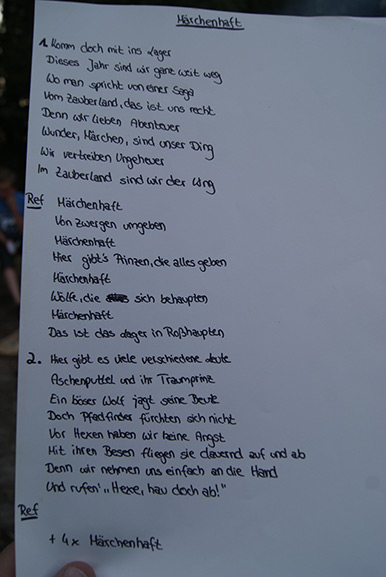 Märchenhaft
1. Komm doch mit ins Lager
Dieses Jahr sind wir ganz weit weg
Wo man spricht von einer Saga
Vom Zauberland, das ist uns recht
Denn wir lieben Abenteuer
Wunder, Märchen, sind unser Ding
Wir vertreiben Ungeheuer
Im Zauberland sind wir der King
Ref Märchenhaft
Von Zwergen umgeben
Märchenhaft
Hier gibt's Prinzen, die alles geben
Märchenhaft
Wölfe, die sich behaupten
Märchenhaft
Das ist das Lager in Roßhaupten
2. Hier gibt es viele verschiedene Leute
Aschenputtel und ihr Traumprinz
Ein böser Wolf jagt seine Beute
Doch Pfadfinder fürchten sich nicht
Vor Hexen haben wir keine Angst
Mit ihren Besen fliegen sie dauernd auf und ab
Denn wir nehmen uns einfach an die Hand
Und rufen „Hexe, hau doch ab!"
Ref
+ 4x Märchenhaft